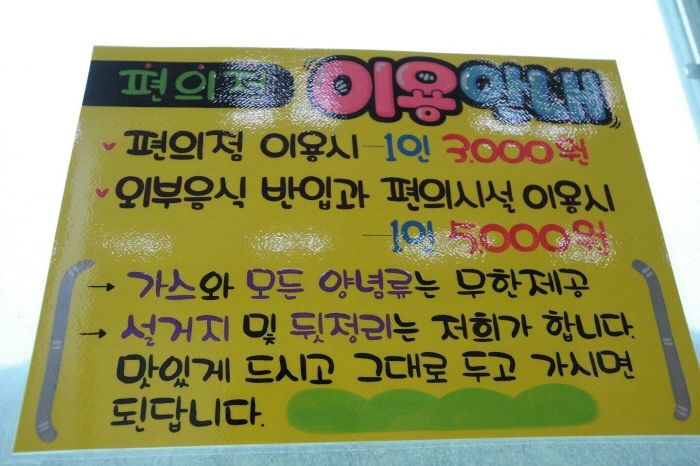 편의점 이용안내
편의점 이용시 1인 3.000원
외부음식 반입과 편의시설 이용시
1인 5000원
→ 가스와 모든 양념류는 무한제공
→ 설거지 및 뒷정리는 저희가 합니다.
맛있게 드시고 그대로 두고 가시면
된답니다.